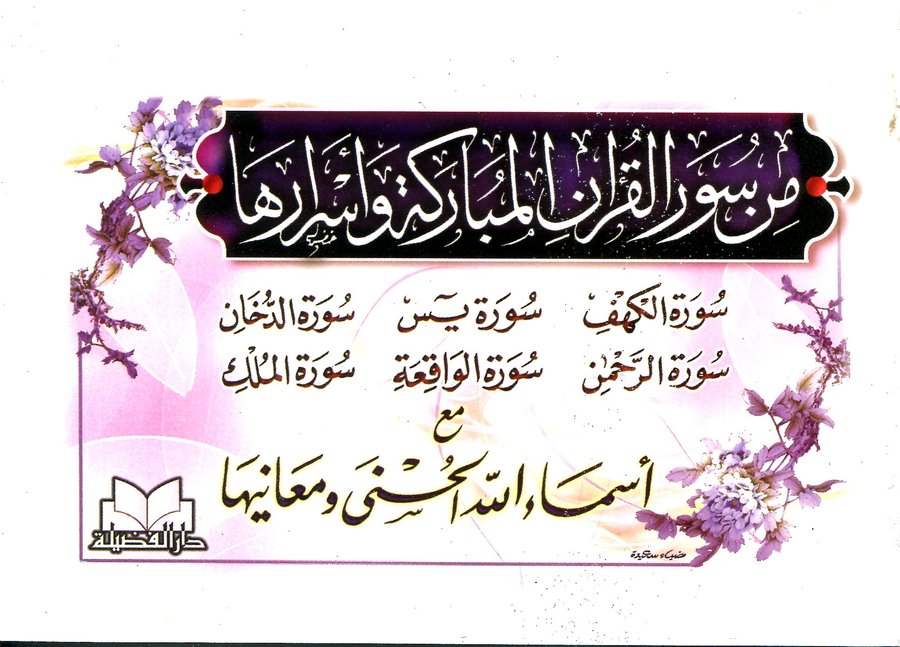 مِن سُوَرِ القُرآنِ المُبَارَكَةِ وَأَسْرَارِهَا
سُورَة الكَهْفِ سُورَة يسٓ سُورَة الدُّخَان
سُورَة الرَّحْمٰنِ سُورَة الوَاقِعَةِ سُورَة المُلْكِ
مع
أسماء اللّٰه الحُسْنَى ومعَانيهَا
دار الفضيلة